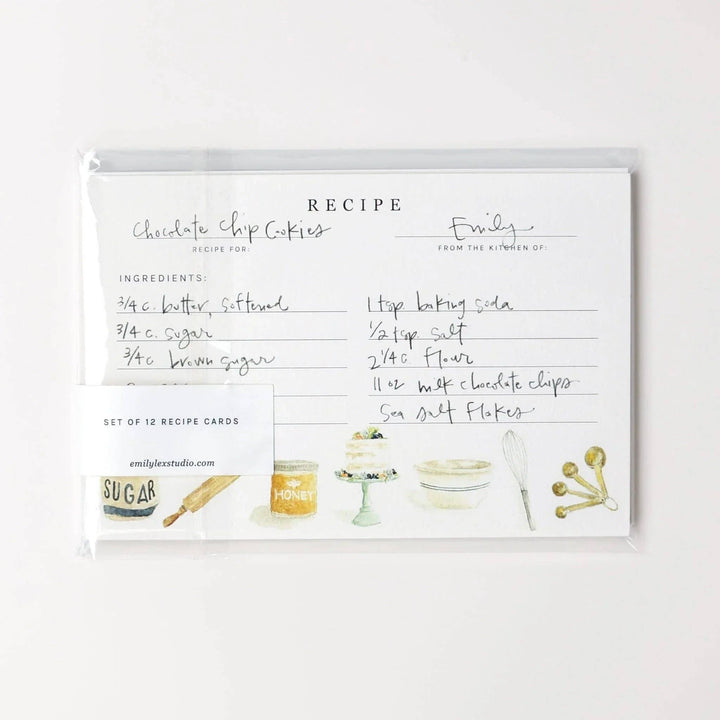 RECIPE
Chocolate Chip Cookies
Emily
RECIPE FOR:
FROM THE KITCHEN OF:
INGREDIENTS:
3/4 c. butter, softened
3/4 c. sugar
3/4 c brown sugar
1 tsp. baking soda
1/2 tsp salt
2 1/4 c. flour
11 oz milk chocolate chips
Sea salt flakes
SET OF 12 RECIPE CARDS
emilylexstudio.com
SUGAR
HONEY